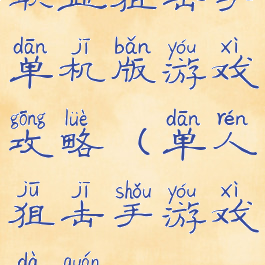 狙击手
dān jī bǎn yóu xì
单机版游戏
gōng lüè dān rén
攻略（单人
jū jī shǒu yóu xì
狙击手游戏
dà quán